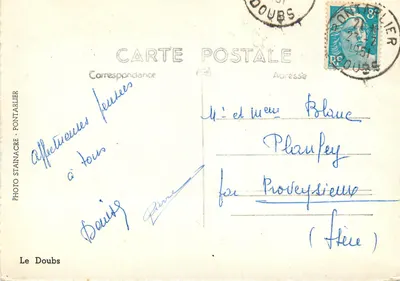 DOUBS
PONTARLIER
1951
DOUBS
CARTE POSTALE
Correspondance
Adresse
PHOTO STAINACRE - PONTARLIER
affectueuses pensées
à tous
Mr et mem Blanc
Planfey
par Proveysieux
(Isère)
Le Doubs